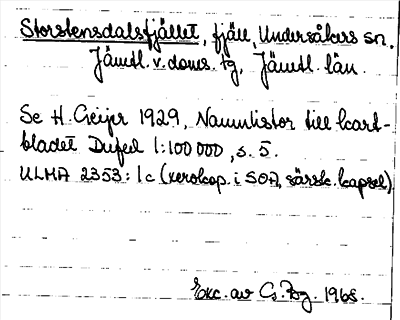 Storstensdalsfjället, fjäll, Undersåkers sn,
Jämtl. v. doms. tg, Jämtl. län.
Se H. Geijer 1929, Namnlistor till kart-
bladet Dufed 1:100 000, s. 5.
ULMA 2353:1c (xerokop. i SOA, särsk. kapsel)
Exc. av 1968.